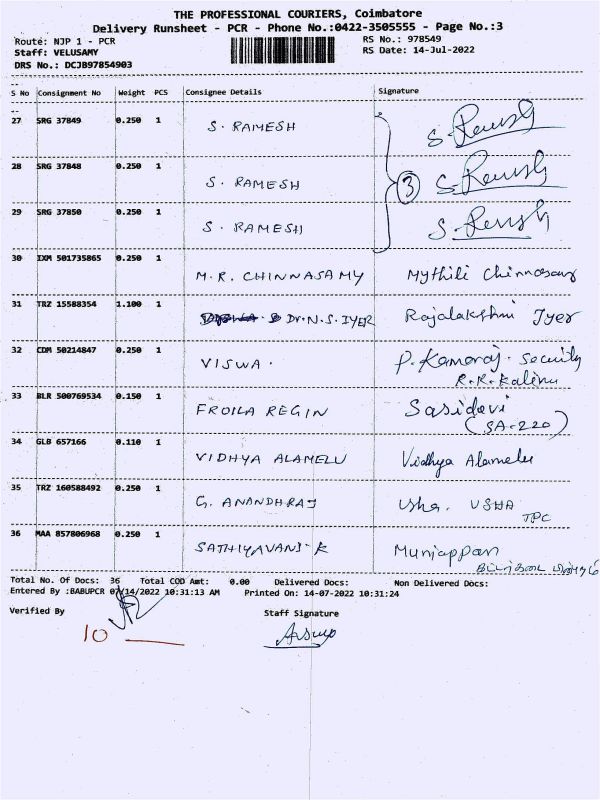 THE PROFESSIONAL COURIERS, Coimbatore
Delivery Runsheet - PCR - Phone No.:0422-3505555 - Page No.:3
Route: NJP 1 - PCR
RS No.: 978549
Staff: VELUSAMY
RS Date: 14-Jul-2022
DRS No.: DCJB97854903
S No Consignment No Weight PCS Consignee Details Signature
27 SRG 37849 0.250 1 S. RAMESH
28 SRG 37848 0.250 1 S. RAMESH 3
29 SRG 37850 0.250 1 S. RAMESH
30 IXM 501735865 0.250 1 M.R. CHINNASAMY Mythili Chinnasamy
31 TRZ 15588354 1.100 1 Dr. N.S. IYER Rajalakshmi Iyer
32 CDM 50214847 0.250 1 VISWA. P. Kamaraj. Security
R.R.
33 BLR 500769534 0.150 1 FROILA REGIN Sasidevi
(SA-220)
34 GLB 657166 0.110 1 VIDHYA ALAMELU Vidhya Alamelu
35 TRZ 160588492 0.250 1 G. ANANDHRAJ Usha. USHA
TPC
36 MAA 857806968 0.250 1 SATHIYAVANI K Muniappan
Total No. Of Docs: 36 Total COD Amt: 0.00 Delivered Docs: Non Delivered Docs:
Entered By :BABUPCR 07/14/2022 10:31:13 AM Printed On: 14-07-2022 10:31:24
Verified By Staff Signature
10